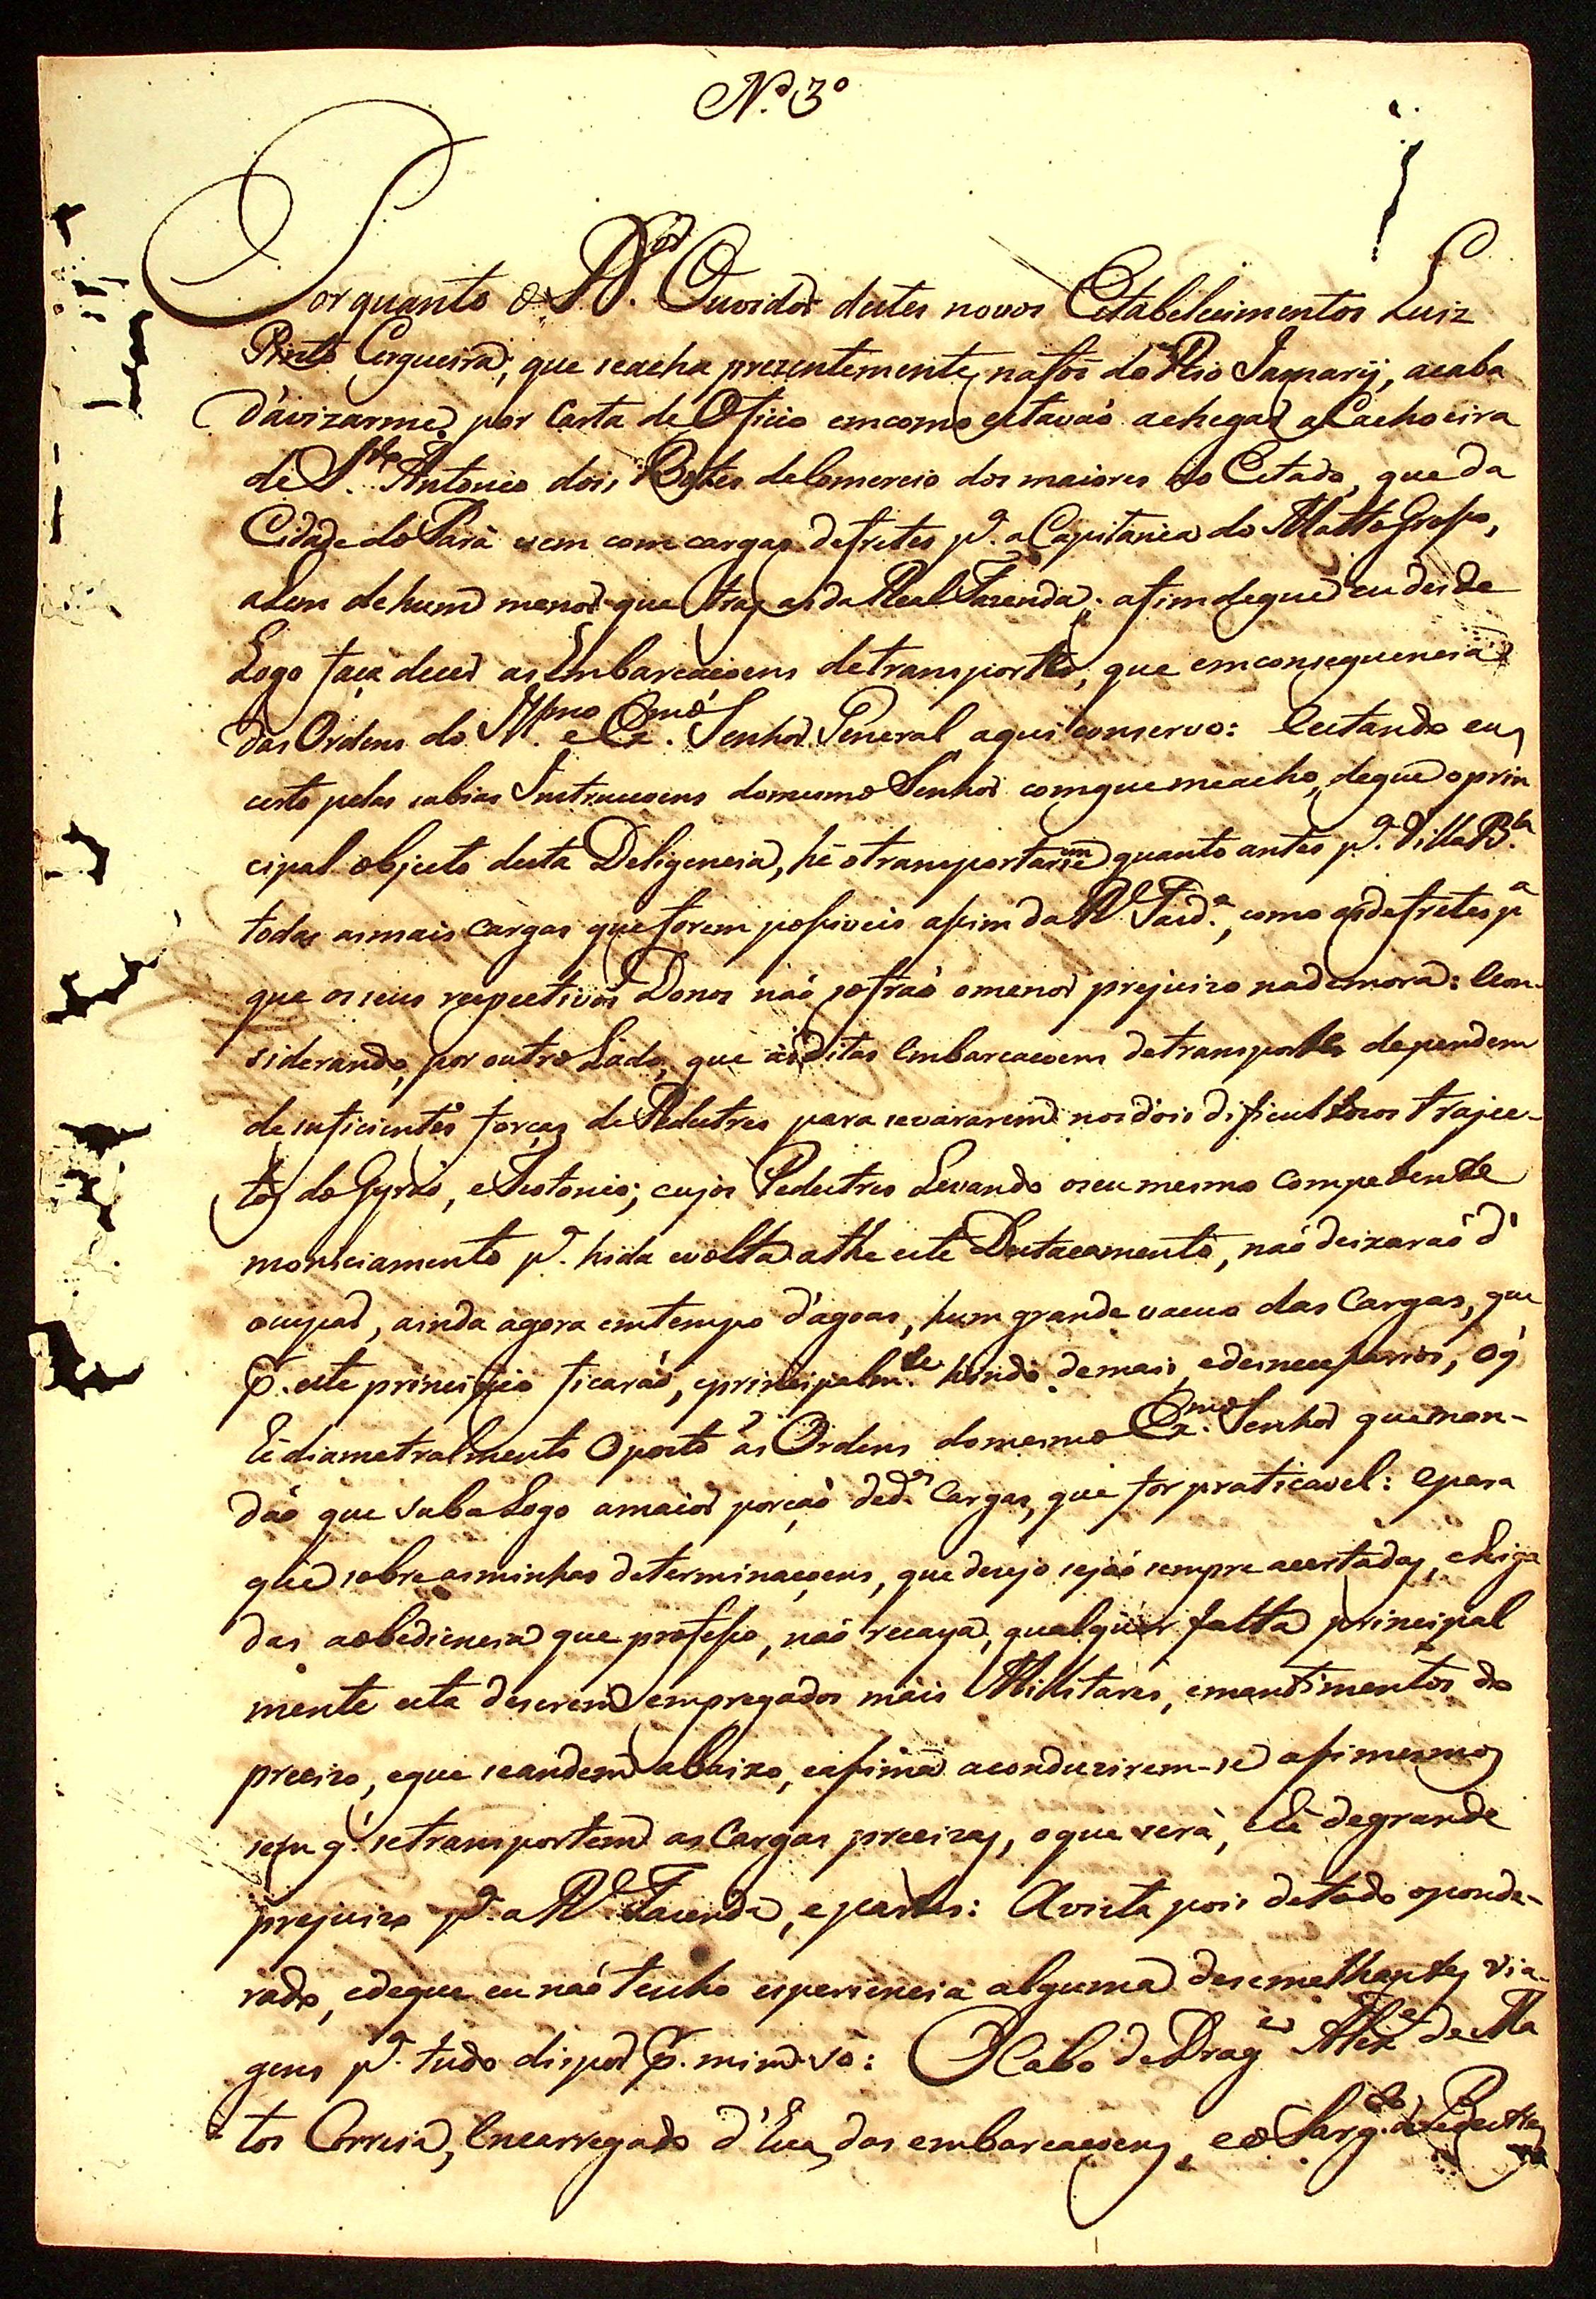 N.º 3º
Porquanto o D.or Ouvidor destes novos Estabelecimentos Luiz
Pinto Cerqueira, que seacha prezentemente nafós do Rio Jamarÿ, acaba
d'avizarme por Carta de Oficio emcomo estavaõ achegar aCachoeira
de S.to Antonio dois Botes deComercio dos maiores do Estado, que da
Cidade do Parà vem com cargas defretes p.ª aCapitania do MattoGroso,
alem de hum menor que tras as da Real Fazenda; afim deque eu desde
Logo faça decer as Embarcaçoens detransporte, que emconsequencia
das Ordens do Il.mo e Ex.mo Senhor General aqui conservo: Eestando eu
certo pelas sabias Instrucçoens domesmo Senhor comque meacho, deque oprin
cipal objecto desta Deligencia, hé otransportarem se quanto antes p.ª Villa B.la
todas asmais cargas que forem posiveis asim da R.l Fazd.ª, como asdefretes p.ª
que os seus respectivos Donos naõ sofraõ omenor prejuizo nademora: Econ-
siderando, por outro Lado, que às ditas Embarcaçoens detransporte dependem
de suficientes forças de Pedestres para sevararem nos dois dificultozos traje-
tos do Gyráo, e Teotonio; cujos Pedestres Levando oseu mesmo competente
moniciamento p.ª hida evolta athe este Destacamento, naõ deixaraõ d'
ocupar, ainda agora emtempo d'agoas, hum grande vacuo das Cargas, que
p. este principio ficaraõ, eprincipalm.te hindo demais, edesnecesarios, oq̃
hé diametralmente Oposto ás Ordens domesmo Ex.mo Senhor queman-
daõ que suba Logo amaior porçaõ ded.as Cargas, que for praticavel: Epara
que sobre asminhas determinaçoens, que dezejo sejaõ sempre acertadas, eLiga
das aobediencia que profeso, naõ recaya qualquer falta principal
mente esta deserem empregados mais Militares, emantimentos do
precizo, eque seandem abaixo, easima aconduzirem-se asimesmos
sem q̃ setransportem as Cargas precizas, oque será, hé degrande
prejuizo p.ª a R.l Fazenda, epartes: Avista pois detodo oponde-
rado, edeque eu naõ tenho esperiencia alguma desemelhantes via-
gens p.ª tudo dispor p. mim só: OCabo deDrag.es Alex.e de Ma
tos Correia, Encarregado d'Eças embarcaçoens, eo Sarg.to de Pedestres